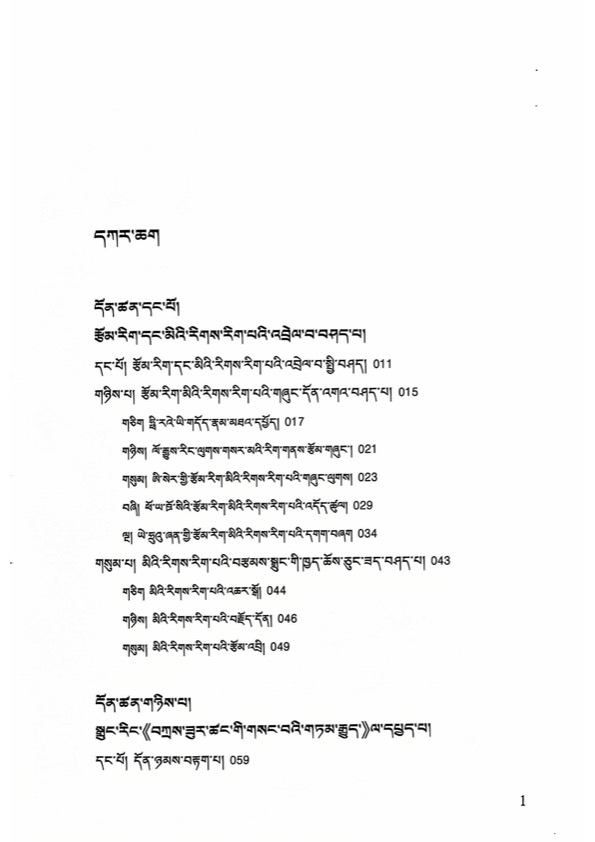 དཀར་ཆག
དོན་ཚན་དང་པོ།
རྩོམ་རིག་དང་མིའི་རིགས་རིག་པའི་འབྲེལ་བ་བཤད་པ།
དང་པོ། རྩོམ་རིག་དང་མིའི་རིགས་རིག་པའི་འབྲེལ་བ་སྤྱི་བཤད། 011
གཉིས་པ། རྩོམ་རིག་མིའི་རིགས་རིག་པའི་གཞུང་དོན་འགའ་བཤད་པ། 015
གཅིག ཧྥི་རའེ་ཡི་གདོད་རྣམ་མཐའ་དཔྱོད། 017
གཉིས། ལོ་རྒྱུས་རིང་ལུགས་གསར་མའི་རིག་གནས་རྩོམ་གཞུང་། 021
གསུམ། ཨི་སེར་གྱི་རྩོམ་རིག་མིའི་རིགས་རིག་པའི་གཞུང་ལུགས། 023
བཞི། ཕོ་ཡ་ཁྲོ་སིའི་རྩོམ་རིག་མིའི་རིགས་རིག་པའི་འདོད་ཚུལ། 029
ལྔ། ཡེ་ཧྲུའུ་ཞན་གྱི་རྩོམ་རིག་མིའི་རིགས་རིག་པའི་དགག་བཞག 034
གསུམ་པ། མིའི་རིགས་རིག་པའི་བརྩམས་སྒྲུང་གི་ཁྱད་ཆོས་ཅུང་ཟད་བཤད་པ། 043
གཅིག མིའི་རིགས་རིག་པའི་འཆར་སྒོ། 044
གཉིས། མིའི་རིགས་རིག་པའི་བརྗོད་དོན། 046
གསུམ། མིའི་རིགས་རིག་པའི་རྩོམ་འབྲི། 049
དོན་ཚན་གཉིས་པ།
སྒྲུང་རིང་《བཀྲས་ཟུར་ཚང་གི་གསང་བའི་གཏམ་རྒྱུད་》ལ་དཔྱད་པ།
དང་པོ། དོན་ཉམས་བརྟག་པ། 059
1